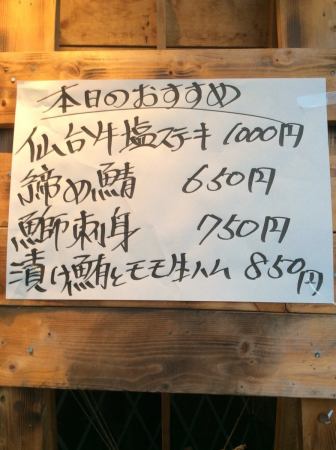 本日のおすすめ
仙台牛塩ステキ 1000円
締め鯖 650円
鰤刺身 750円
漬け鮪とモモ生ハム 850円